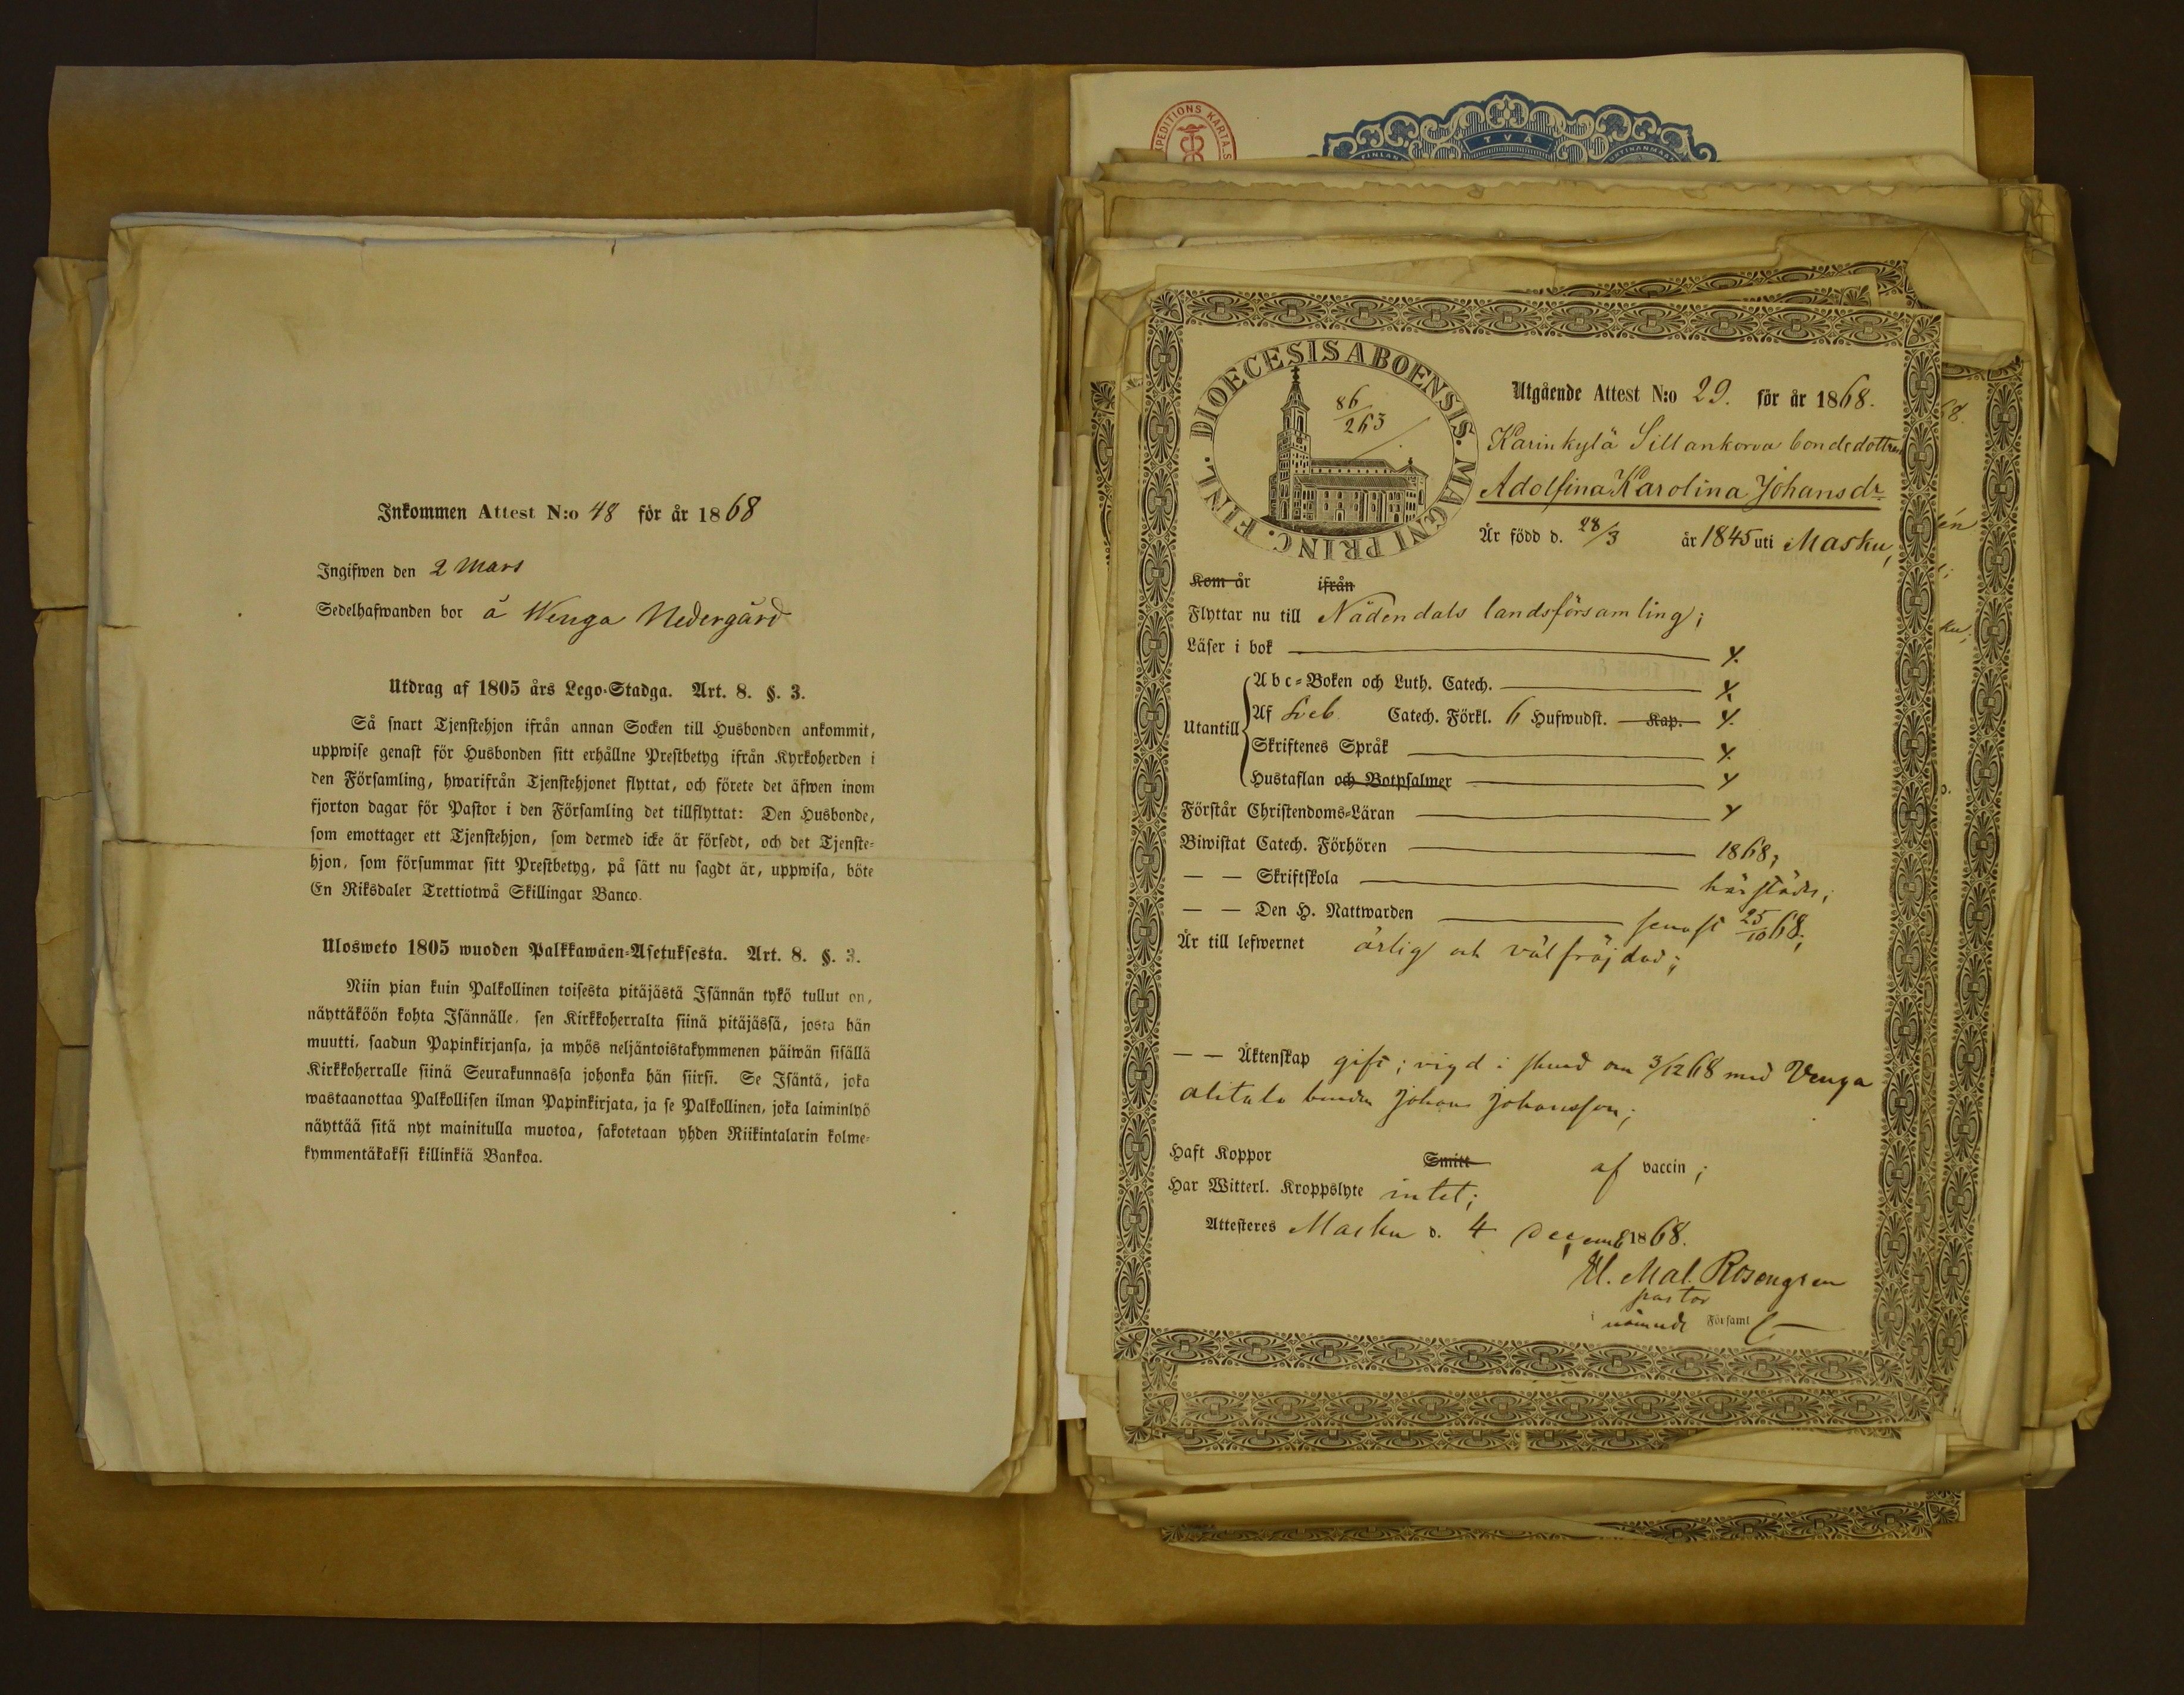 Inkommen Attest N:o 48 för år 1868
Ingifwen den 2 Mars
Sedelhafwanden bor å Wenga Nedergård
Utdrag af 1805 års Lego-Stadga. Art. 8. §. 3.
Så snart Tjenstehjon ifrån annan Socken till Husbonden ankommit,
uppwise genast för Husbonden sitt erhållne Prestbetyg ifrån Kyrkoherden i
den Församling, hwarifrån Tjenstehjonet flyttat, och förete det äfwen inom
fjorton dagar för Pastor i den Församling det tillflyttat: Den Husbonde,
som emottager ett Tjenstehjon, som dermed icke är försedt, och det Tjenste-
hjon, som försummar sitt Prestbetyg, på sätt nu sagdt är, uppwisa, böte
En Riksdaler Trettiotwå Skillingar Banco.
Ulosweto 1805 wuoden Palkkawäen-Asetuksesta. Art. 8. §. 3.
Niin pian kuin Palkollinen toisesta pitäjästä Isännän tykö tullut on,
näyttäköön kohta Isännälle, sen Kirkkoherralta siinä pitäjässä, josta hän
muutti, saadun Papinkirjansa, ja myös neljäntoistakymmenen päiwän sisällä
Kirkkoherralle siinä Seurakunnassa johonka hän siirsi. Se Isäntä, joka
wastaanottaa Palkollisen ilman Papinkirjata, ja se Palkollinen, joka laiminlyö
näyttää sitä nyt mainitulla muotoa, sakotetaan yhden Riikintalarin kolme-
kymmentäkaksi killinkiä Bankoa.
EXPEDITIONS KARTA.S
TVÅ
FINLAN
DIOECESIS ABOENSIS. MAGNI PRINC. FINL.
86/263
Utgående Attest N:o 29. för år 1868.
Karinkylä Sillankorva bondedottren
Adolfina Karolina Johansdr
Är född d. 28/3 år 1845 uti Masku,
Kom år ifrån
Flyttar nu till Nådendals landsförsamling;
Läser i bok
Utantill
Abc-Boken och Luth. Catech.
Af Sveb. Catech. Förkl. 6 Hufwudst. Kap.
Skriftenes Språk
Hustaflan och Botpsalmer
Förstår Christendoms-Läran
Biwistat Catech. Förhören 1868;
— — Skriftskola härstädes;
— — Den H. Nattwarden senast 25/10 68;
Är till lefwernet ärlig och välfräjdad;
— — Äktenskap gift; vigd i stånd om 3/12 68 med Venga
alitalo bonden Johan Johansson;
Haft Koppor Smitt af vaccin;
Har Witterl. Kroppslyte intet;
Attesteres Masku d. 4 Decemb 1868.
Mal. Rosengren
pastor
i nämnde Församl